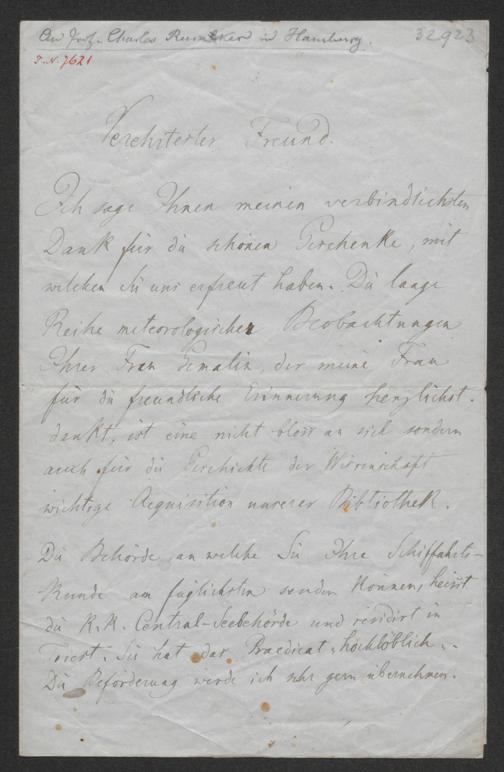 An Prof. Charles Rümker in Hamburg.
32923
I.N. 7621
Verehrtester Freund.
Ich sage Ihnen meinen verbindlichsten
Dank für die schönen Geschenke, mit
welchen Sie uns erfreut haben. Die lange
Reihe meteorologischer Beobachtungen
Ihrer Frau Gemalin, der meine Frau
für die freundliche Erinnerung herzlichst
dankt, ist eine nicht bloss an sich sondern
auch für die Geschichte der Wissenschaft
wichtige Acquisition unserer Bibliothek.
Die Behörde, an welche Sie Ihre Schiffahrts-
kunde am füglichsten senden können, heisst
die K. K. Central-Seebehörde und residirt in
Triest. Sie hat das Praedicat „hochlöblich".
Die Beförderung werde ich sehr gern übernehmen.